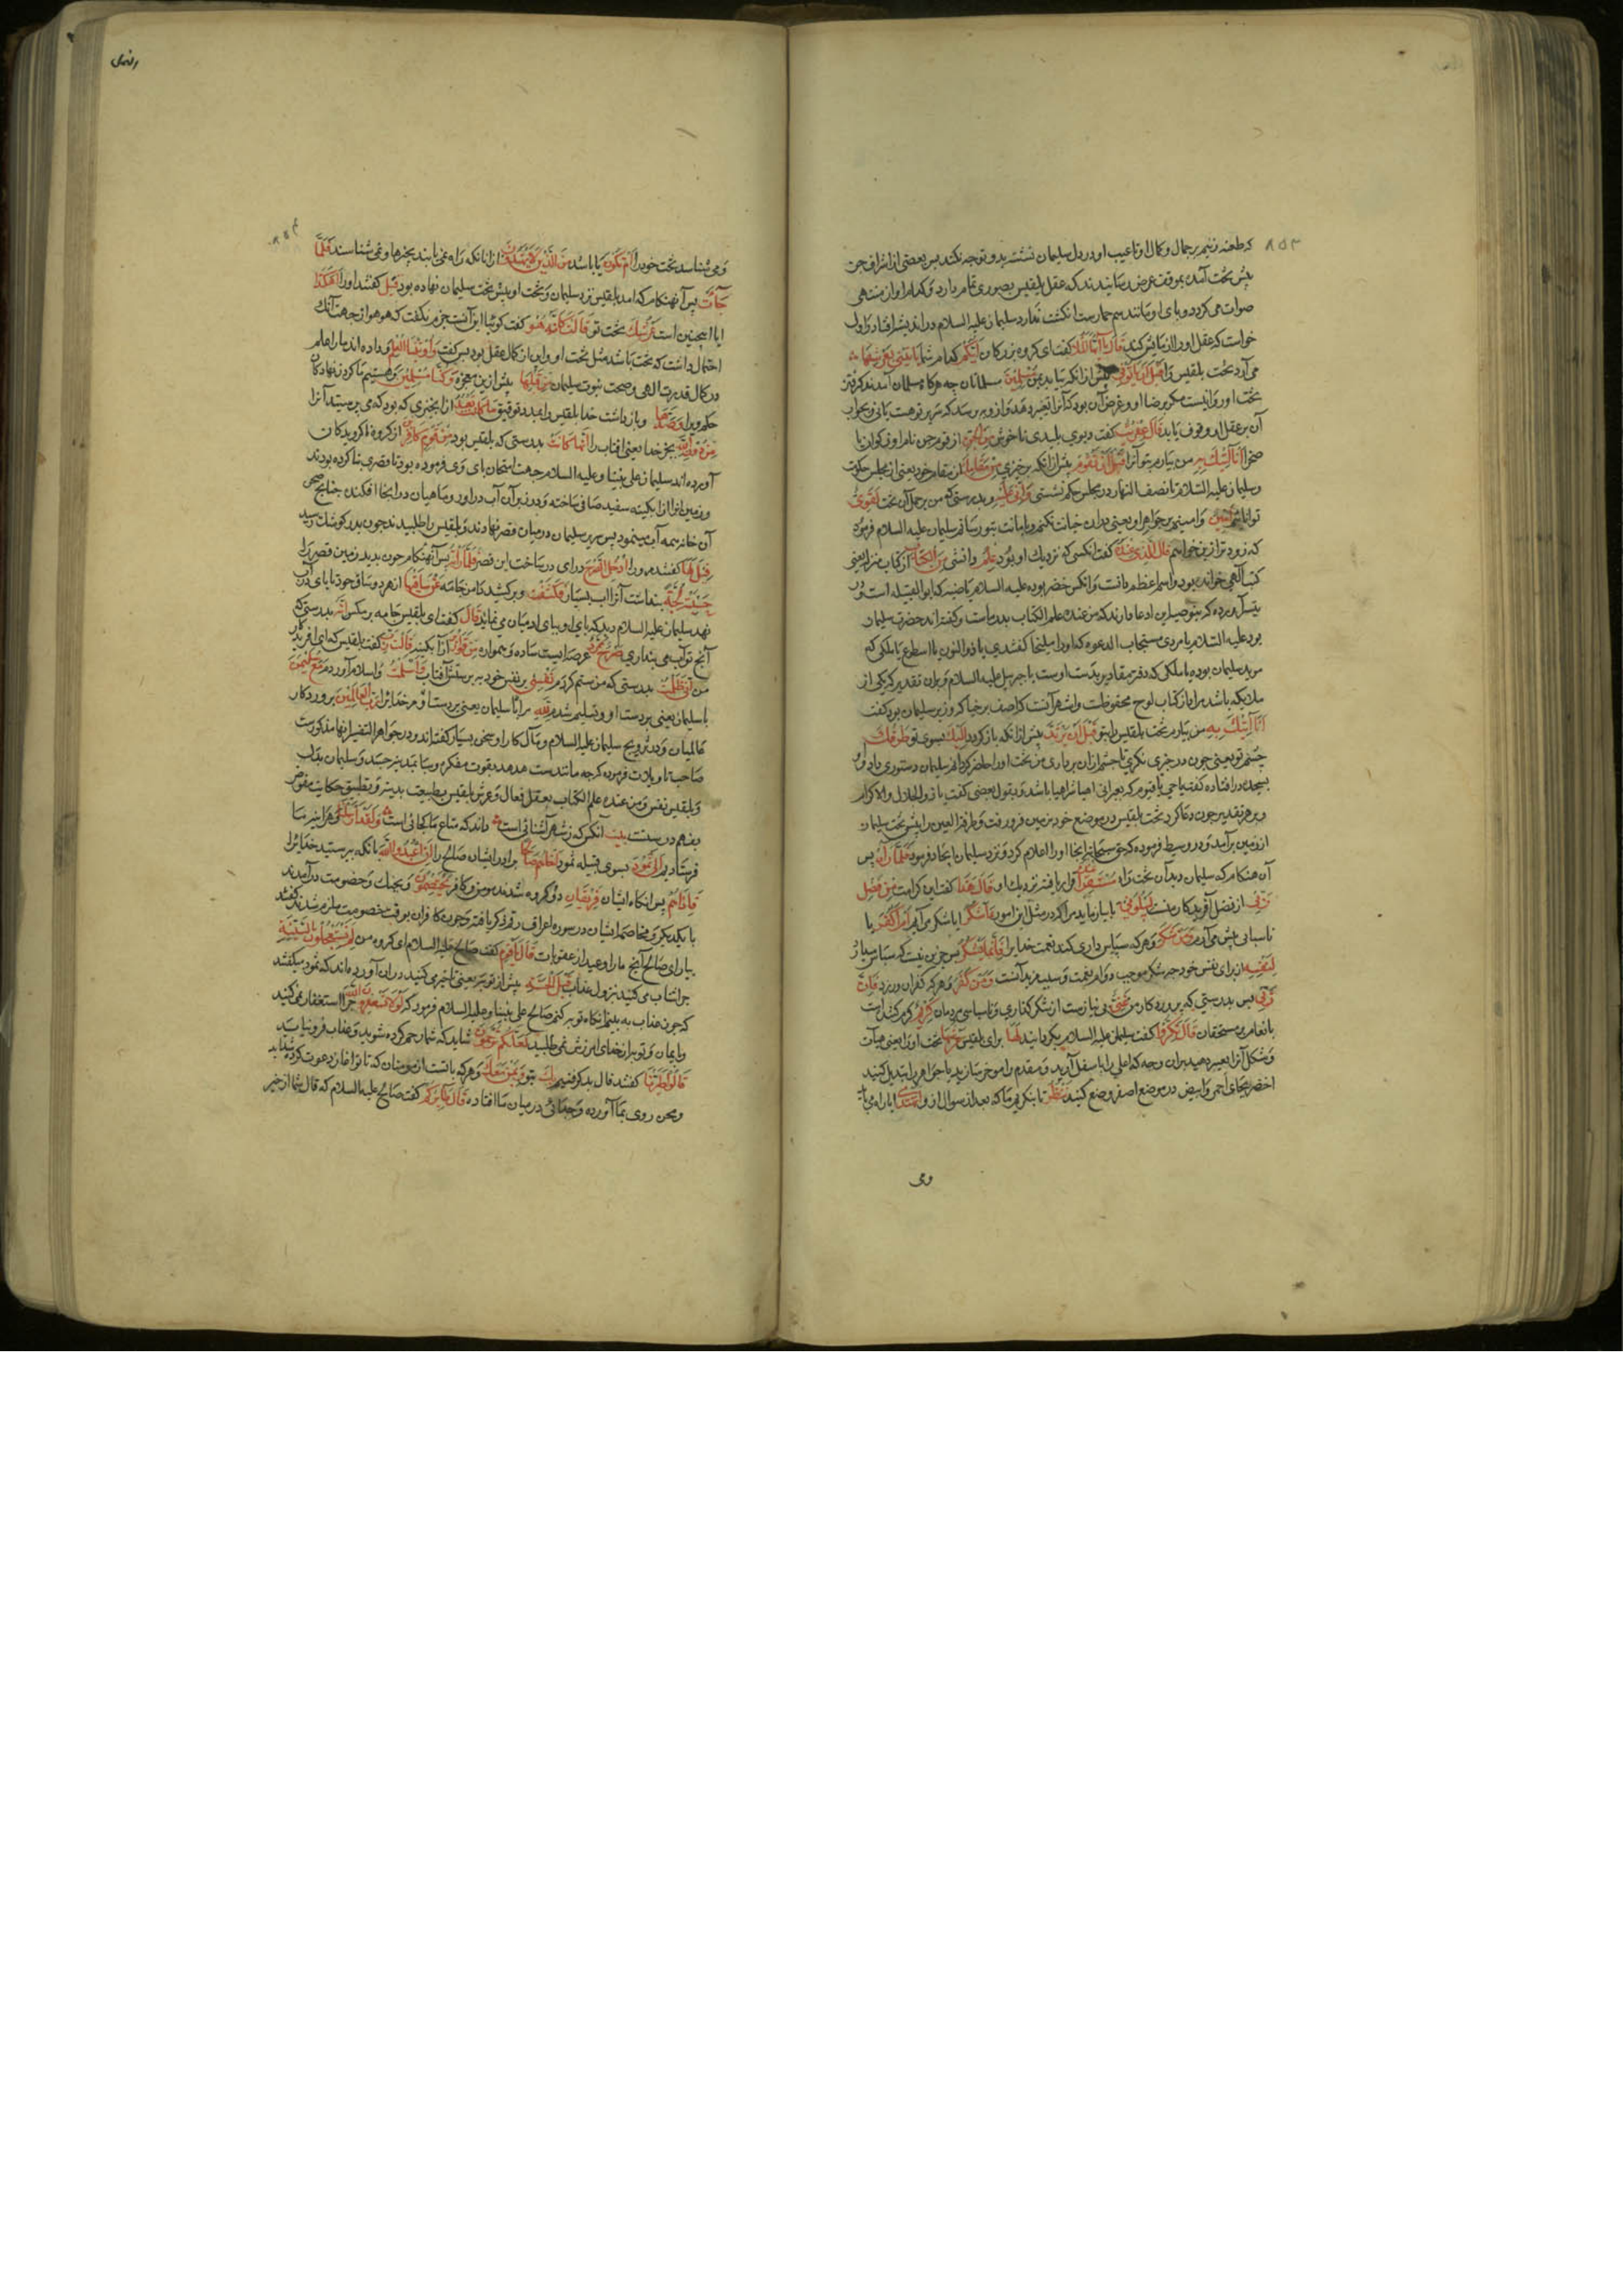 ۸۵۳
که طعنه زنیم بر جمال و کمال او تا عیب او در دل سلیمان نشسته بدو توجه نکند پس بعضی از اشراف جن
پیش تخت آمده بموقف عرض رسانیدند که عقل بلقیس قصوری تمام دارد و کلام او از منتهی
صواب می کردد و پای او مانند سم حمارست انکشت ندارد سلیمان علیه السلام در اندیشه افتاد و اول
خواست که عقل او را ازمایش کند قال یا ایها الملا کفت ای کروه بزرکان ایکم کدام شما یاتینی بعرشها
می آرد تخت بلقیس را قبل ان یاتونی پیش از انکه بیاید بمن مسلمین مسلمانان چه هرکاه مسلمان آمدند کرفتن
تخت او روا نیست مکر برضا او و غرض آن بود که آنرا تغییر دهد و از وی پرسد که سریر تو هست یا نی و بجواب
آن بر عقل او وقوف یابد قال عفریت کفت دیوی پلیدی ناخوش من الجن از قوم جن نام او ذکوان یا
صخر انا آتیک به من بیارم بتو آنرا قبل ان تقوم پیش از انکه برخیزی من مقامک از مقام خود یعنی از مجلس حکومت
و سلیمان علیه السلام تا نصف النهار در مجلس حکم نشستی و انی علیه و بدرستی که من بر حمل آن تخت لقوی
توانایم امین و امینم بر جواهر او یعنی در ان خیانت نکنم و بامانت بتو رسانم سلیمان علیه السلام فرمود
که زود تر ازین خواهم قال الذی عنده کفت انکسی که نزدیک او بود علم دانشی من الکتاب از کتاب منزل یعنی
کتب آلهی خوانده بود و اسم اعظم دانست و انکس خضر بوده علیه السلام یا ضبه که ابو القبیله است و در
بود علیه السلام یا مردی مستجاب الدعوه که او را ملیخا کفتندی یا ذو النون یا اسطوم یا ملکی که
موید سلیمان بوده یا ملکی که دفتر مقادیر بدست اوست یا جبریل علیه السلام و بران تقدیر که یکی از
ملایکه باشد مراد از کتاب لوح محفوظست و اشهر آنست که اصف برخیا که وزیر سلیمان بود کفت
انا آتیک به من بیارم تخت بلقیس را بتو قبل ان یرتد پیش از انکه باز کردد الیک بسوی تو طرفک
چشم تو یعنی چون در چیزی نکری تا چشم از ان برداری من تخت او را حاضر کردانم سلیمان دستوری داد و او
بسجده در افتاده کفت یا حی یا قیوم که بعبرانی اهیا شراهیا باشد و بقول بعضی کفت یا ذو الجلال و الاکرام
و بر هر تقدیر چون دعا کرد تخت بلقیس در موضع خود بزمین فرو رفت و طرفة العین در پیش تخت سلیمان
از زمین برآمد و در وسیط فرموده که حق سبحانه انجا او را اعلام کرد و نزد سلیمان ایجاد فرمود فلما راه پس
آن هنکام که سلیمان دید آن تخت را مستقرا عنده قرار یافته نزدیک او قال هذا کفت این کرامت من فضل
ربی از فضل آفریدکار منست لیبلونی تا بیازماید مرا که در مثل این امور ءاشکر ایا شکر می آرم ام اکفر یا
ناسپاسی پیش می آرم و من شکر و هر که سپاس داری کند نعمت خدایرا فانما یشکر پس جزین نیست که سپاس میدارد
لنفسه از برای نفس خود چه شکر موجب دوام نعمت و سبب مزید آنست و من کفر و هر که کفران ورزد فان
ربی پس بدرستی که پروردکار من غنی بی نیازست از شکر کذاری و ناسپاسی مردمان کریم کرم کننده است
بانعام بر مستحقان قال نکروا کفت سلیمان علیه السلام بکردانید لها برای بلقیس عرشها تخت او را یعنی هیآت
و شکل آنرا تغییر دهید بران وجه که اعلی را باسفل آرید و مقدم را موخر سازید یا جواهر را تبدیل کنید
اخضر بجای احمر و ابیض در موضع اصفر وضع کنید ننظر تا بنکریم ما که بعد از سوال از و اتهتدی ایا راه می یابد
و می
النمل
۸۵۴
و می شناسد تخت خود را ام تکون یا باشد من الذین لا یهتدون از انانکه راه نمی یابند بچیزها و نمی شناسند فلما
جاءت پس آنهنکام که امد بلقیس نزد سلیمان و تخت او پیش تخت سلیمان نهاده بود قیل کفتند او را اهکذا
ایا اینچنین است عرشک تخت تو قالت کانه هو کفت کوییا این آنست جزم نکفت که هو هو از جهت آنک
احتمال داشت که تخت باشد مثل تخت او و این از کمال عقل بود پس کفت و اوتینا العلم و داده اند ما را علم
در کمال قدرت الهی و صحت نبوت سلیمان من قبلها پیش ازین معجزه و کنا مسلمین و هستیم ما کردن نهادکان
حکم ویرا و صدها و باز داشت خدا بلقیس را بمدد توفیق ما کانت تعبد از انچیزی که بود که می پرستید آنرا
من دون الله بجز خدا یعنی افتاب را انها کانت بدرستی که بلقیس بود من قوم کافرین از کروه ناکرویدکان
آورده اند سلیمان علی نبینا و علیه السلام جهت امتحان پای وی فرموده بود تا قصری بنا کرده بودند
و زمین انرا از ابکینه سفید صافی ساخته و در زیر آن آب در اورد و ماهیان در انجا افکنده چنانچه صحن
آن خانه همه آب مینمود پس سریر سلیمان در میان قصر نهادند و بلقیس را طلبیدند چون بدر کوشک رسید
قیل لها کفتند مر ورا ادخلی الصرح درای در ساحت این قصر فلما راته پس آنهنکام چون بدید زمین قصر را
حسبته لجة پنداشت آنرا آب بسیار و کشفت و برکشید دامن جامه عن ساقیها از هر دو ساق خود تا پای در آب
نهد سلیمان علیه السلام دید که پای او بپای ادمیان می نماید قال کفت ای بلقیس جامه برمکش انه بدرستی که
آنچ تو آب می پنداری صرح ممرد عرصه ایست ساده و هموار من قواریر از آبکینه قالت رب کفت بلقیس که ای افریدکار
من انی ظلمت بدرستی که من ستم کردم نفسی بر نفس خود به پرستش آفتاب و اسلمت و اسلام آوردم مع سلیمن
با سلیمان یعنی بر دست او و تسلیم شدم لله مرانا سلیمان یعنی بر دست او مر خدایرا رب العالمین پروردکار
عالمیان و در تزویج سلیمان علیه السلام و مآل کار او سخن بسیار کفته اند و در جواهر التفسیر انها مذکورست
صاحب تاویلات فرموده کرچه مانندست هدهد بقوت مفکره و سبا بمدینه جسد و سلیمان بقلب
و بلقیس بنفس و من عنده علم الکتاب بعقل فعال و عرش بلقیس بطبیعت بدنیه و تطبیق حکایت مفوض
بفهم درستست بیت آنکس که ز شهر آشنائی است داند که متاع ما کجائی است و لقد ارسلنا و هر اینه ما
فرستادیم الی ثمود بسوی قبیله ثمود اخاهم صالحا برادر ایشان صالح را ان اعبدوا الله بانکه بپرستید خدایرا
فاذا هم پس انکاه ایشان فریقان دو کروه شدند مومن و کافر یختصمون و بجنک و خصومت درآمدند
با یکدیکر و مخاصمه ایشان در سوره اعراف رقم ذکر یافته و چون کافران بوقت خصومت ملزم شدند کفتند
بیار ای صالح آنچ ما را وعید از عقوبات قال یا قوم کفت صالح علیه السلام ای کروه من لم تستعجلون بالسیئة
چرا شتاب می کنید بنزول عذاب قبل الحسنة پیش از توبه یعنی تاخیر می کنید دران آورده اند که ثمود میکفتند
که چون عذاب به بینیم انکاه توبه کنیم صالح علی نبینا و علیه السلام فرمود که لولا تستغفرون الله چرا استغفار نمی کنید
و ایمان و توبه از خدای امرزش نمی طلبید لعلکم ترحمون شاید که شما رحم کرده شوید و عذاب فرو نیاید
قالوا اطیرنا کفتند فال بد کرفتیم بک بتو و بمن معک و هر که با تست از مومنان که تا تو اغاز دعوت کرده شداید
و محن روی بما آورده و جدائی در میان ما افتاده قال طائرکم کفت صالح علیه السلام که فال شما از خیر